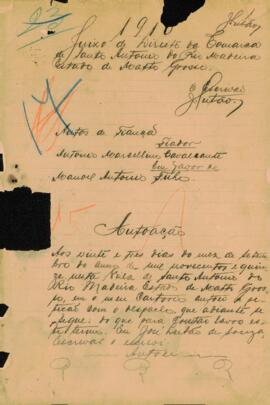 1910
Juizo de Direito da Comarca
de Santo Antonio do Rio Madeira
Estado de Matto Grosso
O Escrivão
Autos de Fiança
Fiador
Antonio Marcellino Cavalcante
Em favor de
Manoel Antonio
Autoação
Aos vinte e tres dias do mez de
do anno de mil novecentos e
nesta Villa de Santo Antonio do
Rio Madeira Estado de Matto Gros
so, em o meu Cartorio autoei a pe
tição com o despacho que adiante se
segue: do que para constar lavro es
te termo. Eu José de Souza,
Escrivão o escrevi